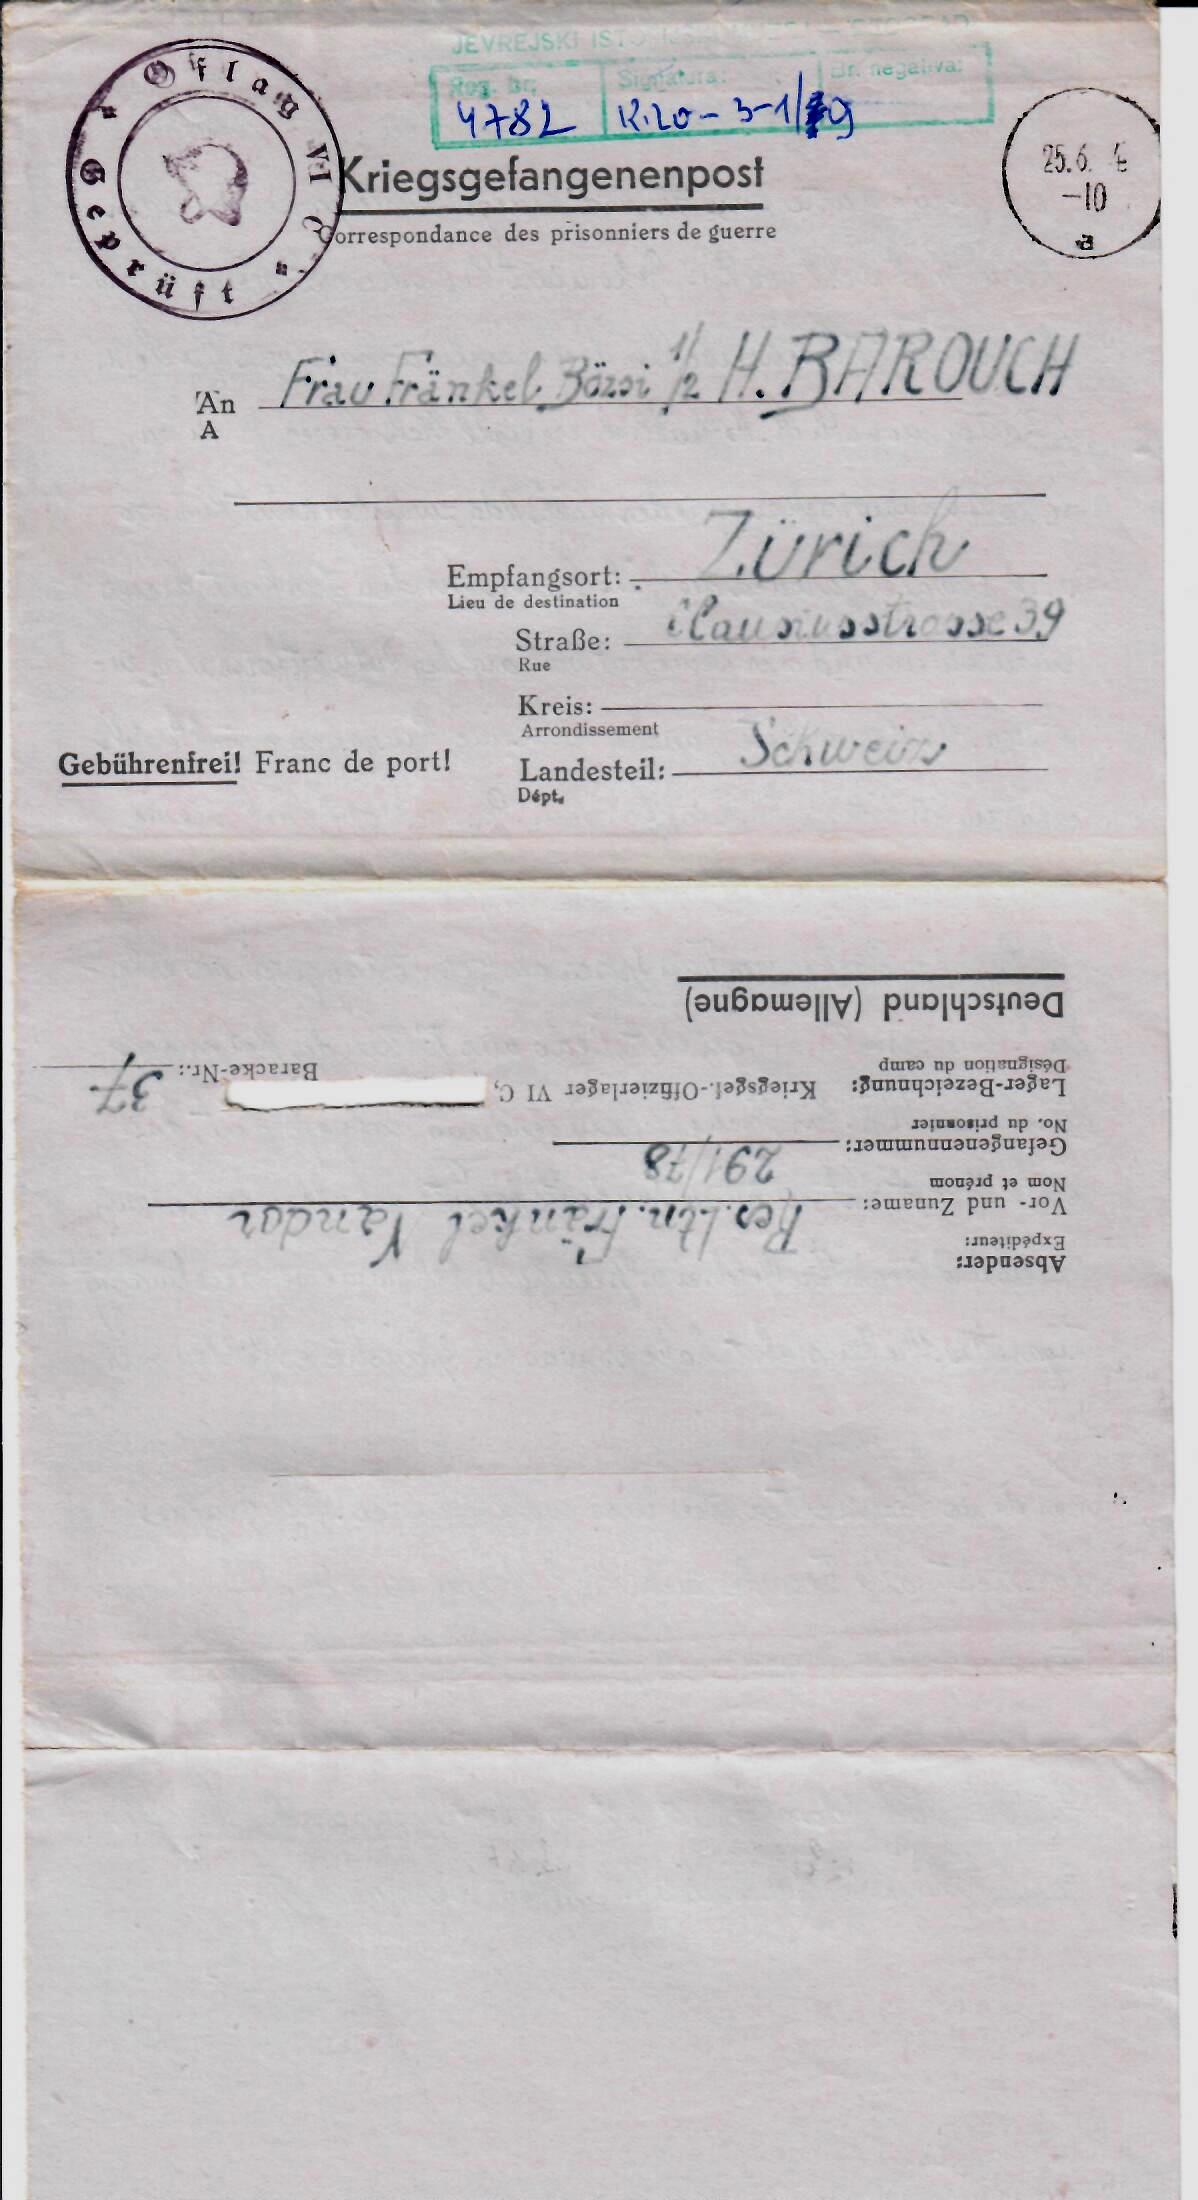 JEVREJSKI
Reg. br. Signatura: Br. negativa:
4782 K.20-3-1/9
Oflag VI C
Geprüft
25.6. 4
-10
a
Kriegsgefangenenpost
Correspondance des prisonniers de guerre
An Frau Fränkel Bözsi 1/2 H. BAROUCH
A
Empfangsort: Zürich
Lieu de destination
Straße: Clausiusstrasse 39
Rue
Kreis:
Arrondissement
Gebührenfrei! Franc de port!
Landesteil: Schweiz
Dépt.
Absender:
Expéditeur:
Vor- und Zuname: Res. Ltn. Fränkel Sandor
Nom et prénom
Gefangenennummer: 291/78
No. du prisonnier
Lager-Bezeichnung: Kriegsgef.-Offizierlager VI C, Baracke-Nr.: 37
Désignation du camp
Deutschland (Allemagne)